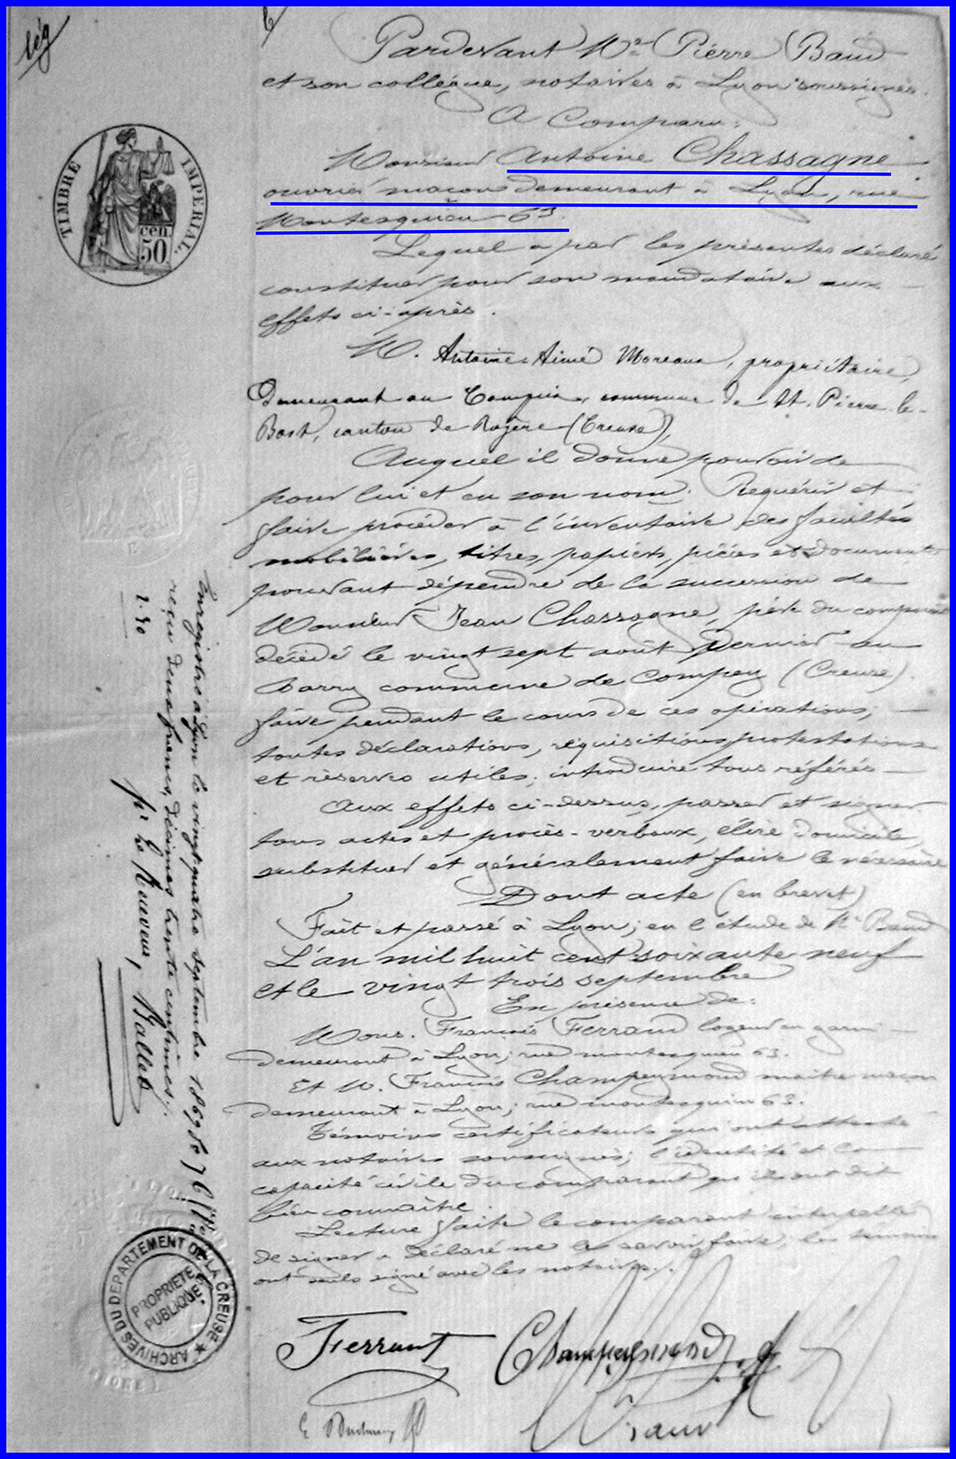 lég
Pardevant Mᵉ Pierre Baud
et son collègue, notaires à Lyon soussignés.
A Comparu:
Monsieur Antoine Chassagne
ouvrier maçon demeurant à Lyon, rue
Montesquieu 63.
Lequel a par les présentes déclaré
constituer pour son mandataire aux
effets ci-après.
M. Antoine Aimé Moreau, propriétaire,
demeurant au commune de St. Pierre-le-
Bost, canton de Royère (Creuse),
Auquel il donne pouvoir de
pour lui et en son nom. Requérir et
faire procéder à l'inventaire des facultés
mobilières, titres, papiers, pièces et documents
pouvant dépendre de la succession de
Monsieur Jean Chassagne, père du comparant
décédé le vingt sept août dernier au
Barry commune de Compey (Creuse).
faire pendant le cours de ces opérations,
toutes déclarations, réquisitions protestations
et réserves utiles; introduire tous référés
Aux effets ci-dessus, passer et signer
tous actes et procès-verbaux, élire domicile,
substituer et généralement faire le nécessaire
Dont acte (en brevet)
Fait et passé à Lyon, en l'étude de Mᵉ Baud
L'an mil huit cent soixante neuf
et le vingt trois septembre
En présence de:
Mons. François Ferrand logeur en garni
demeurant à Lyon, rue montesquieu 63.
Et M. François Champeymond maître maçon
demeurant à Lyon, rue montesquieu 63.
Témoins certificateurs qui ont attesté
aux notaires soussignés, l'identité et la
capacité civile du comparant qu'ils ont dit
bien connaître.
Lecture faite le comparant interpellé
de signer a déclaré ne le savoir faire, les témoins
ont seuls signé avec les notaires./.
Ferrant
Champeymond
Baud
TIMBRE IMPERIAL.
50 cen.
Enregistré à Lyon le vingt quatre septembre 1869
reçu deux francs, décimes trente centimes./.
2.30
pr le Receveur, Ballet
ARCHIVES DU DÉPARTEMENT DE LA CREUSE
PROPRIÉTÉ
PUBLIQUE